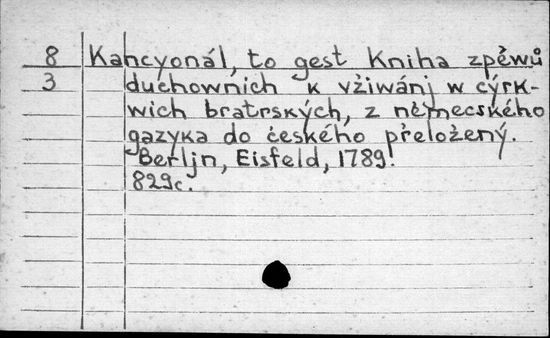 8 Kancyonál, to gest Kniha zpěwů
3 duchownich k vžiwánj w cýrk-
wich bratrských, z německého
gazyka do českého přeložený.
Berljn, Eisfeld, 1789.
829c.